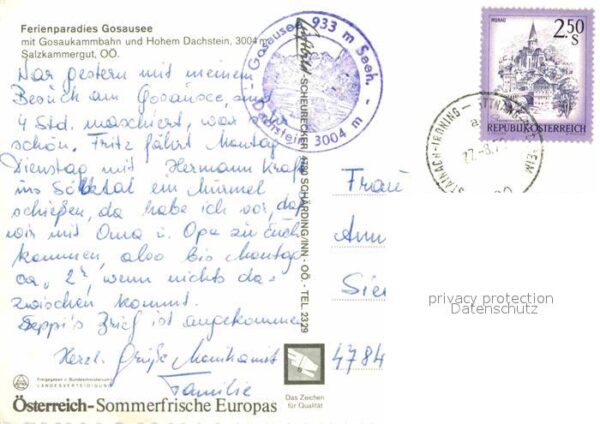 Ferienparadies Gosausee
mit Gosaukammbahn und Hohem Dachstein, 3004 m
Salzkammergut, OÖ.
War gestern mit meinem
Besuch am Gosausee, sind
4 Std. maschiert, war
schön. Fritz fährt Montag
Dienstag mit Hermann Kraft
ins Sölktal ein Murmel
schießen, da habe ich vor, daß
wir mit Oma u. Opa zu Euch
kommen, also bis Montag
ca. "2", wenn nichts da-
zwischen kommt.
Seppi's Brief ist angekommen
Herzl. Grüße Monika mit
Familie
Freigegeben v. Bundesministerium
LANDESVERTEIDIGUNG
Österreich-Sommerfrische Europas
Gosausee 933 m Seeh.
Dachstein 3004 m
SCHEURECKER 4780 SCHÄRDING/INN - OÖ. - TEL. 2329
Das Zeichen
für Qualität
MURAU
2.50
S
REPUBLIK ÖSTERREICH
STAINACH-IRDNING
Frau
Ann
Sie
4784
privacy protection
Datenschutz